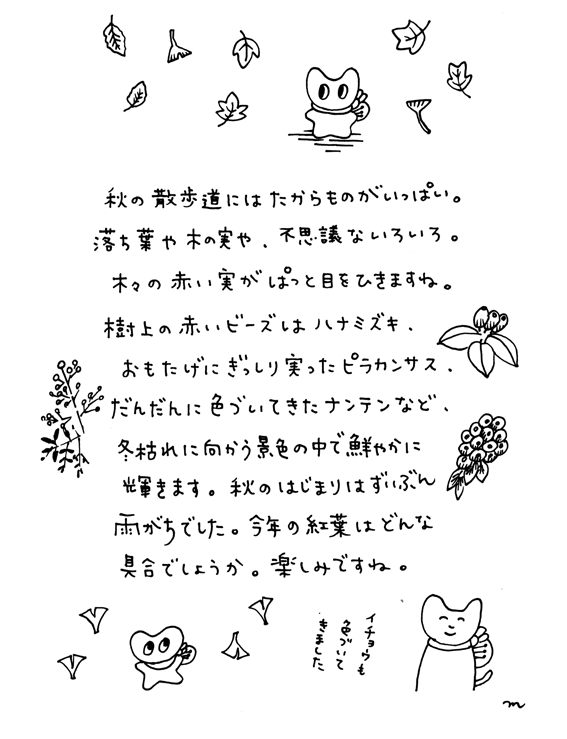 秋の散歩道にはたからものがいっぱい。
落ち葉や木の実や、不思議ないろいろ。
木々の赤い実がぱっと目をひきますね。
樹上の赤いビーズはハナミズキ、
おもたげにぎっしり実ったピラカンサス、
だんだんに色づいてきたナンテンなど、
冬枯れに向かう景色の中で鮮やかに
輝きます。秋のはじまりはずいぶん
雨がちでした。今年の紅葉はどんな
具合でしょうか。楽しみですね。
イチョウも
色づいて
きました
m